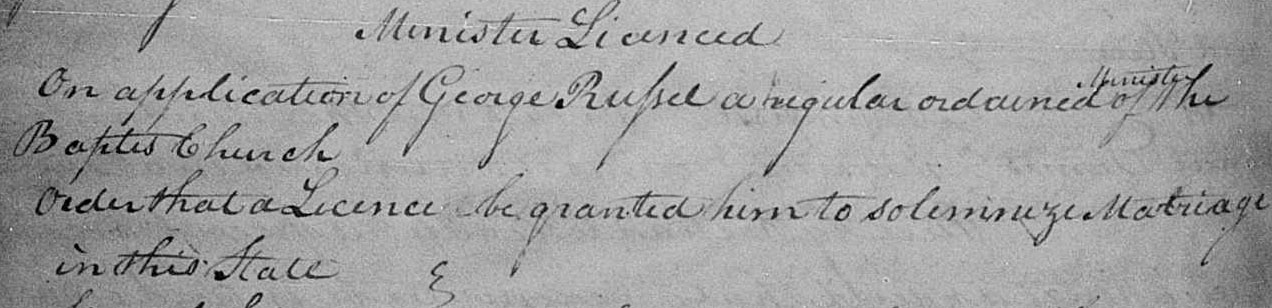 Minister Licenced
On application of George Russel a regular ordained Minister of the
Baptis Church
Order that a Licence be granted him to solemnize Matriage
in this State